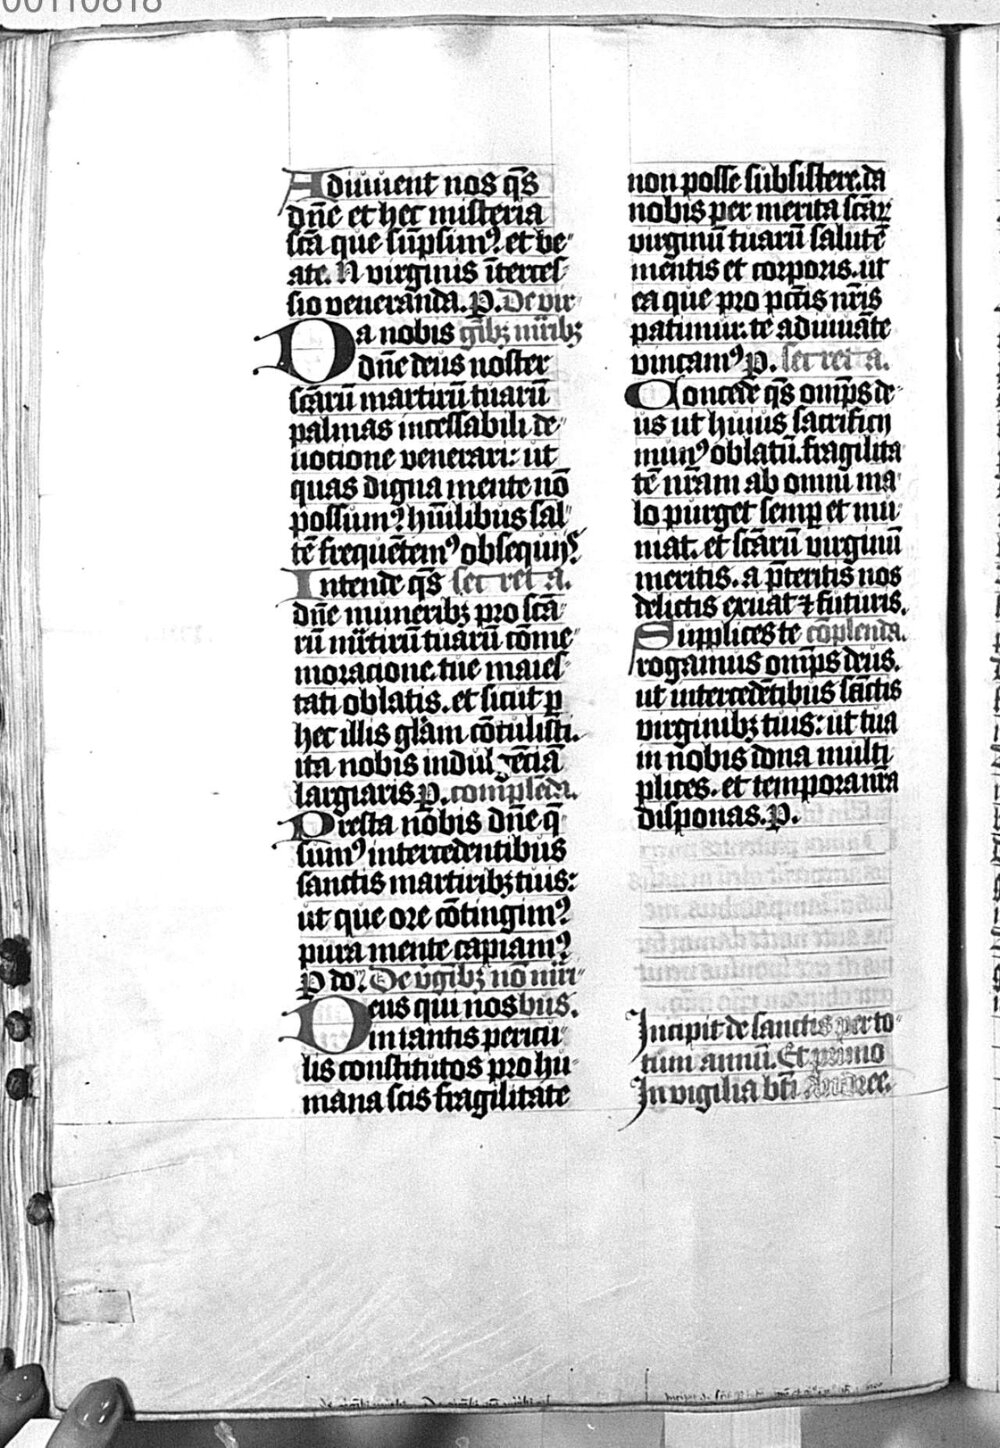 00110818
Adiuuent nos q̄s
dn̄e et hec misteria
sc̄a que sūpsim⁹. et be-
ate. N virginis īterces-
sio veneranda. P. De vir
Da nobis gīb₃ mr̄ib₃
dn̄e deus noster
sc̄arū martirū tuarū
palmas incessabili de-
uocione venerari: ut
quas digna mente nō
possum⁹. hūilibus sal-
tē frequētem⁹ obsequijs.
Intende q̄s secreta.
dn̄e munerib₃ pro sc̄a-
rū mr̄tirū tuarū cōme-
moracione. tue maies-
tati oblatis. et sicut ꝑ
hec illis glām cōtulisti.
ita nobis indulgētiā
largiaris P. complēda.
Presta nobis dn̄e q̄-
sum⁹ intercedentibus
sanctis martirib₃ tuis:
ut que ore cōtingim⁹
pura mente capiam⁹
P do. De v̄gīb₃ nō mr̄i-
Deus qui nos bus.
in tantis pericu-
lis constitutos pro hu-
mana scis fragilitate
non posse subsistere. da
nobis per merita sc̄aꝝ
virginū tuarū salutē
mentis et corporis. ut
ea que pro pcc̄is nr̄is
patimur. te adiuuāte
vincam⁹ p. secreta.
Concede q̄s omīps de-
us ut huius sacrificij
mun⁹ oblatū. fragilita-
tē nr̄am ab omni ma-
lo purget semꝑ et mu-
niat. et sc̄arū virginū
meritis. a p̄teritis nos
delictis exuat ⁊ futuris.
Supplices te cōplenda.
rogamus omīps deus.
ut intercedētibus sāctis
virginib₃ tuis: ut tua
in nobis dona multi-
plices. et tempora nr̄a
disponas. P.
Incipit de sanctis per to-
tum annū. Et primo
In vigilia bt̄i Andree.